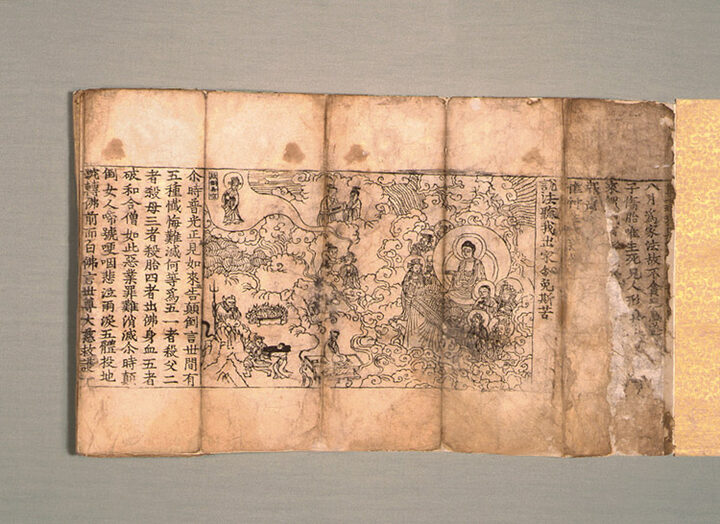 八月爲家法故不貪
子傷胎
說法聽我出家令免斯苦
尒時普光正見如來告顛倒言世間有
五種懺悔難滅何等爲五一者殺父二
者殺母三者殺胎四者出佛身血五者
破和合僧如此惡業罪難消滅尒時顛
倒女人啼號哽咽悲泣雨淚五體投地
轉佛前而白佛言世尊大慈救護